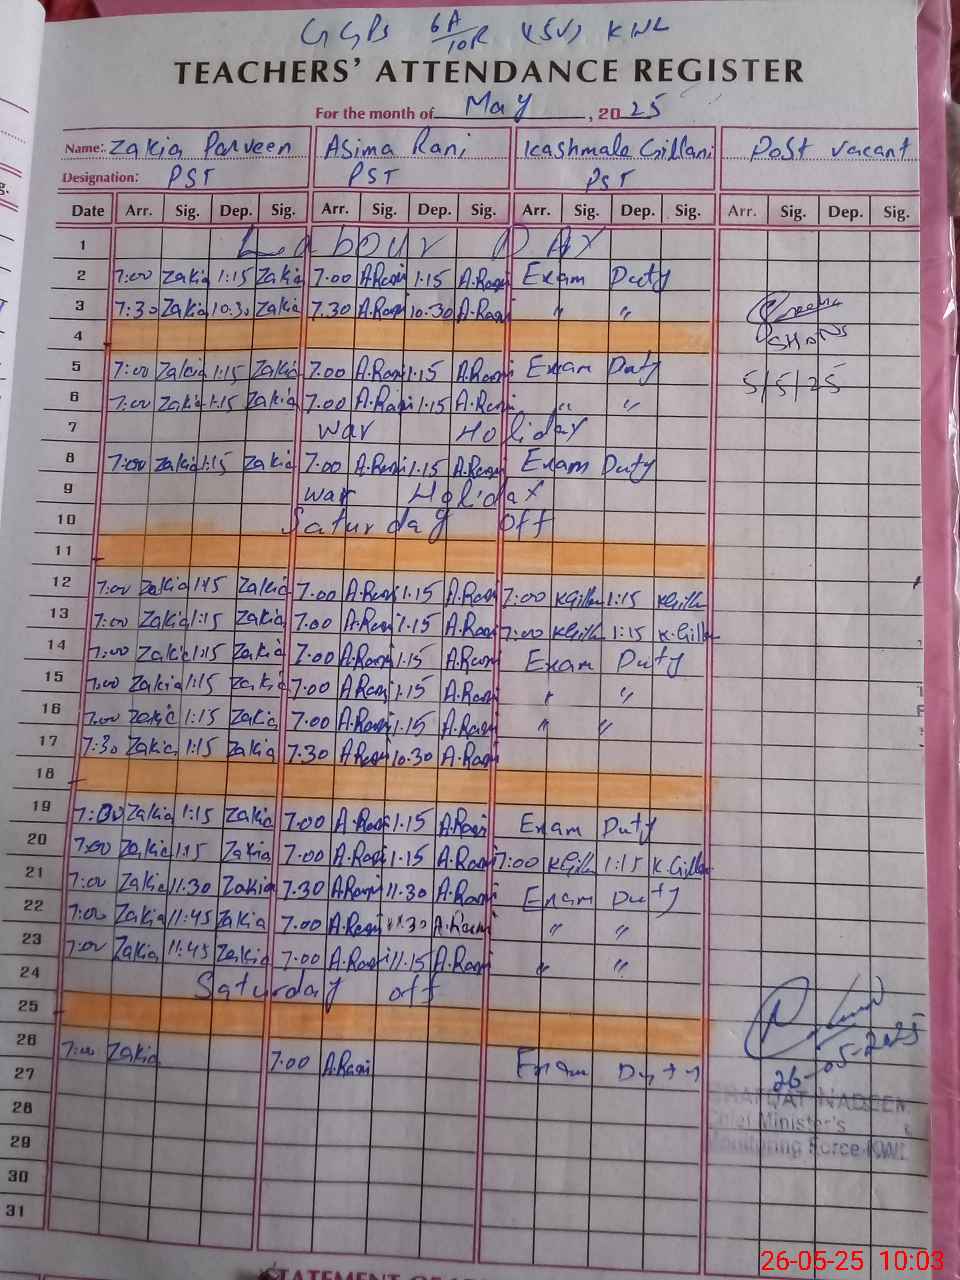 GGPS 6A/10R (SV) KWL
TEACHERS' ATTENDANCE REGISTER
For the month of May, 2025
Name: Zakia Parveen Asima Rani Kashmala Gillani Post vacant
Designation: PST PST PST
Date Arr. Sig. Dep. Sig. Arr. Sig. Dep. Sig. Arr. Sig. Dep. Sig. Arr. Sig. Dep. Sig.
1 Labour DAY
2 7:00 Zakia 1:15 Zakia 7.00 A.Rani 1.15 A.Rani Exam Duty
3 7:30 Zakia 10:30 Zakia 7.30 A.Rani 10.30 A.Rani " "
4
5 7:00 Zakia 1:15 Zakia 7.00 A.Rani 1.15 A.Rani Exam Duty 5/5/25
6 7:00 Zakia 1:15 Zakia 7.00 A.Rani 1.15 A.Rani " "
7 War Holiday
8 7:00 Zakia 1:15 Zakia 7.00 A.Rani 1.15 A.Rani Exam Duty
9 War Holiday
10 Saturday off
11
12 7:00 Zakia 1:15 Zakia 7.00 A.Rani 1.15 A.Rani 7:00 K.Gillani 1:15 K.Gillani
13 7:00 Zakia 1:15 Zakia 7.00 A.Rani 1.15 A.Rani 7:00 K.Gillani 1:15 K.Gillani
14 7:00 Zakia 1:15 Zakia 7.00 A.Rani 1.15 A.Rani Exam Duty
15 7:00 Zakia 1:15 Zakia 7.00 A.Rani 1.15 A.Rani " "
16 7:00 Zakia 1:15 Zakia 7.00 A.Rani 1.15 A.Rani " "
17 7:30 Zakia 1:15 Zakia 7.30 A.Rani 10.30 A.Rani
18
19 7:00 Zakia 1:15 Zakia 7.00 A.Rani 1.15 A.Rani Exam Duty
20 7:00 Zakia 1:15 Zakia 7.00 A.Rani 1.15 A.Rani 7:00 K.Gillani 1:15 K.Gillani
21 7:00 Zakia 11:30 Zakia 7.30 A.Rani 11.30 A.Rani Exam Duty
22 7:00 Zakia 11:45 Zakia 7.00 A.Rani 11.30 A.Rani " "
23 7:00 Zakia 11:45 Zakia 7.00 A.Rani 11.15 A.Rani " "
24 Saturday off
25
26 7:00 Zakia 7.00 A.Rani Exam Duty 26-05-2025
27
NADEEM
28 Chief Minister's
29 Monitoring Force KWL
30
31
STATEMENT OF
26-05-25 10:03